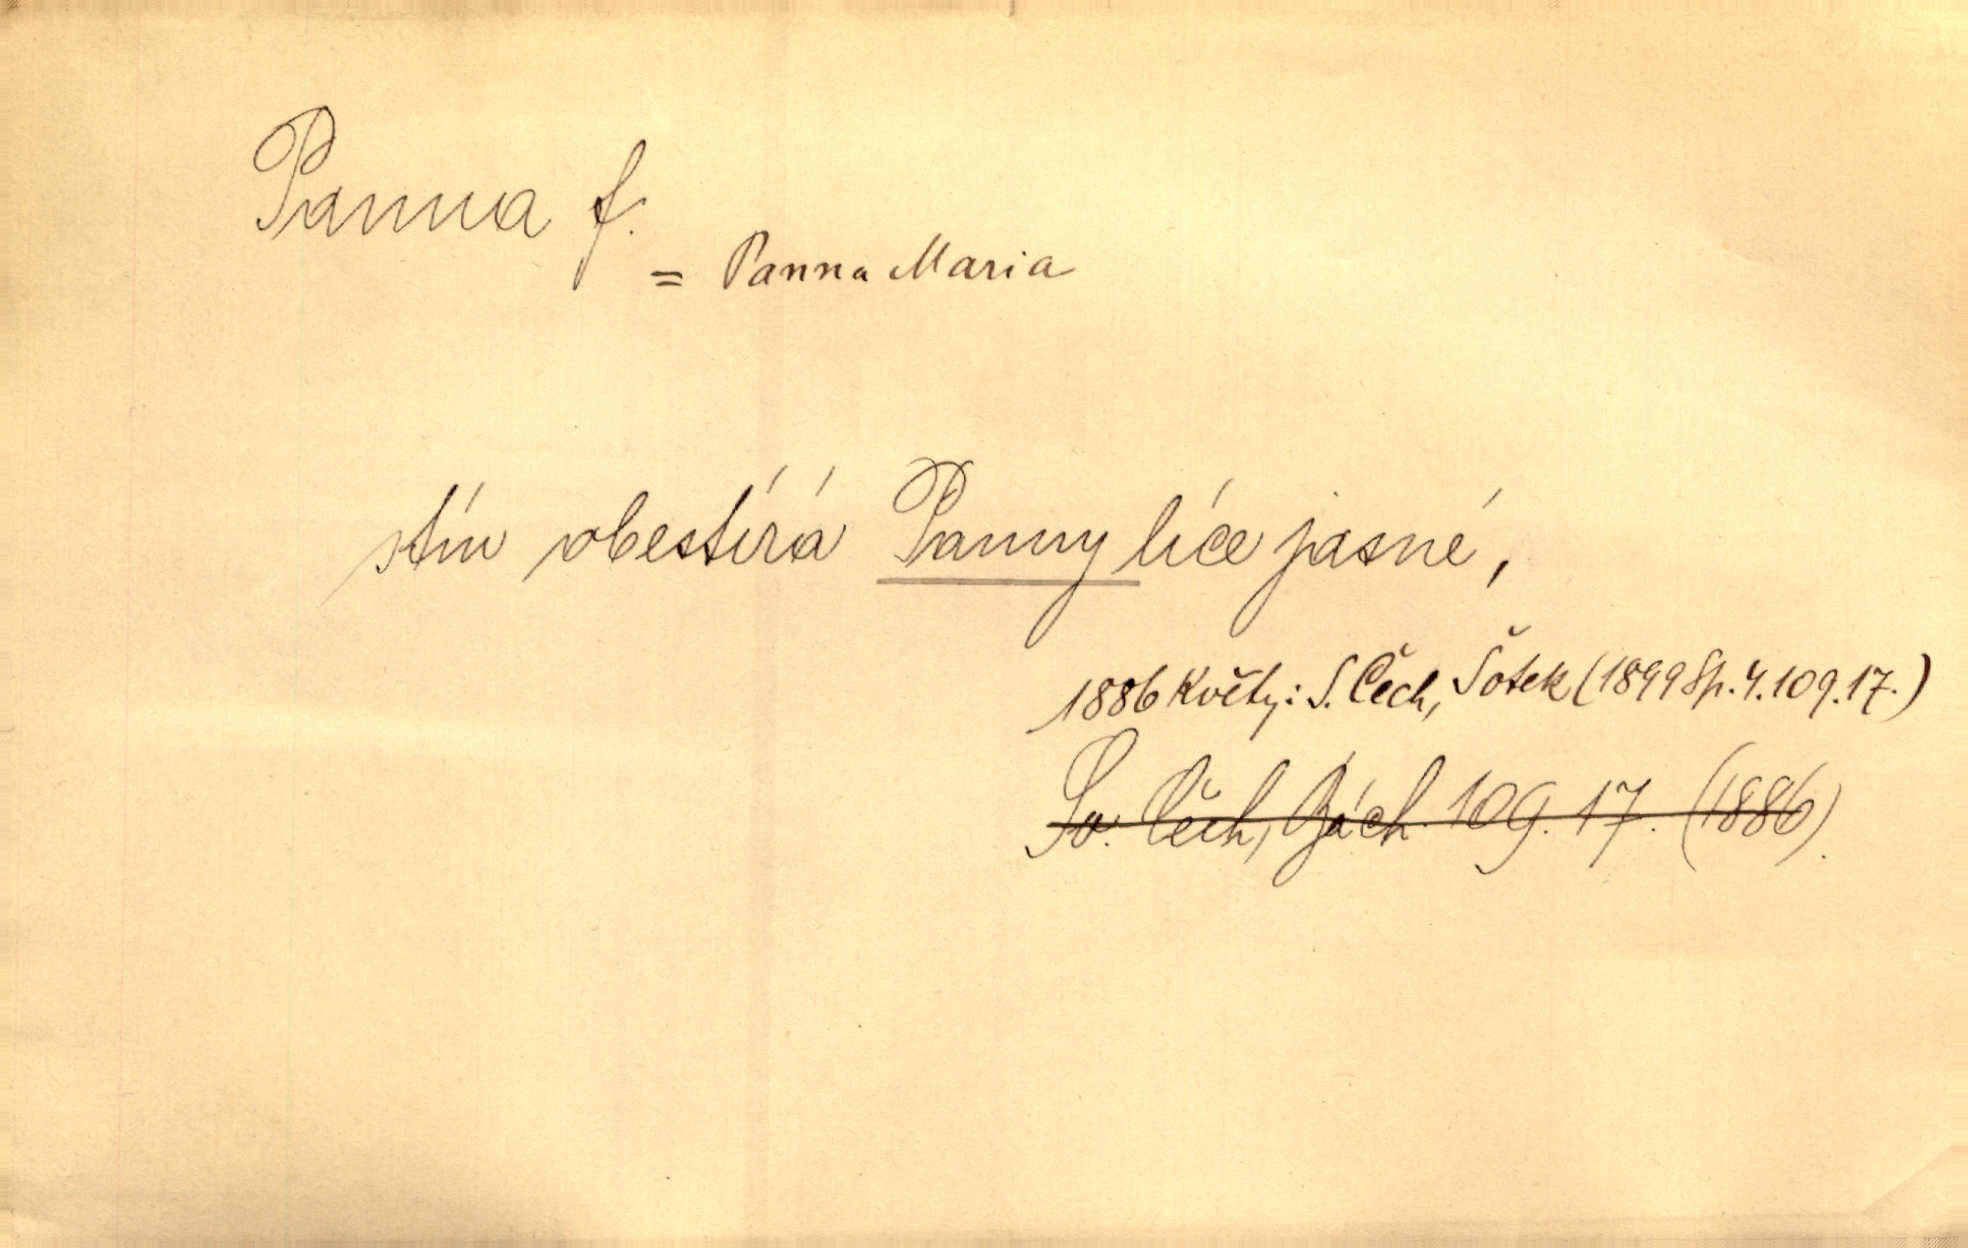 Panna f.
= Panna Maria
stín obestírá Panny líce jasné,
1886 Květy: S. Čech, Šotek (1899 Sp. 4. 109. 17.)
Sv. Čech, 109. 17. (1886).